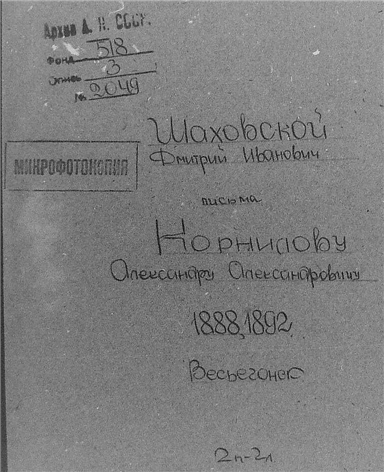 Архив А. Н. СССР.
Фонд 518
Опись 3
№ 2049
МИКРОФОТОКОПИЯ
Шаховской
Дмитрий Иванович
письма
Корнилову
Александру Александровичу
1888, 1892
Весьегонск
2п-2л